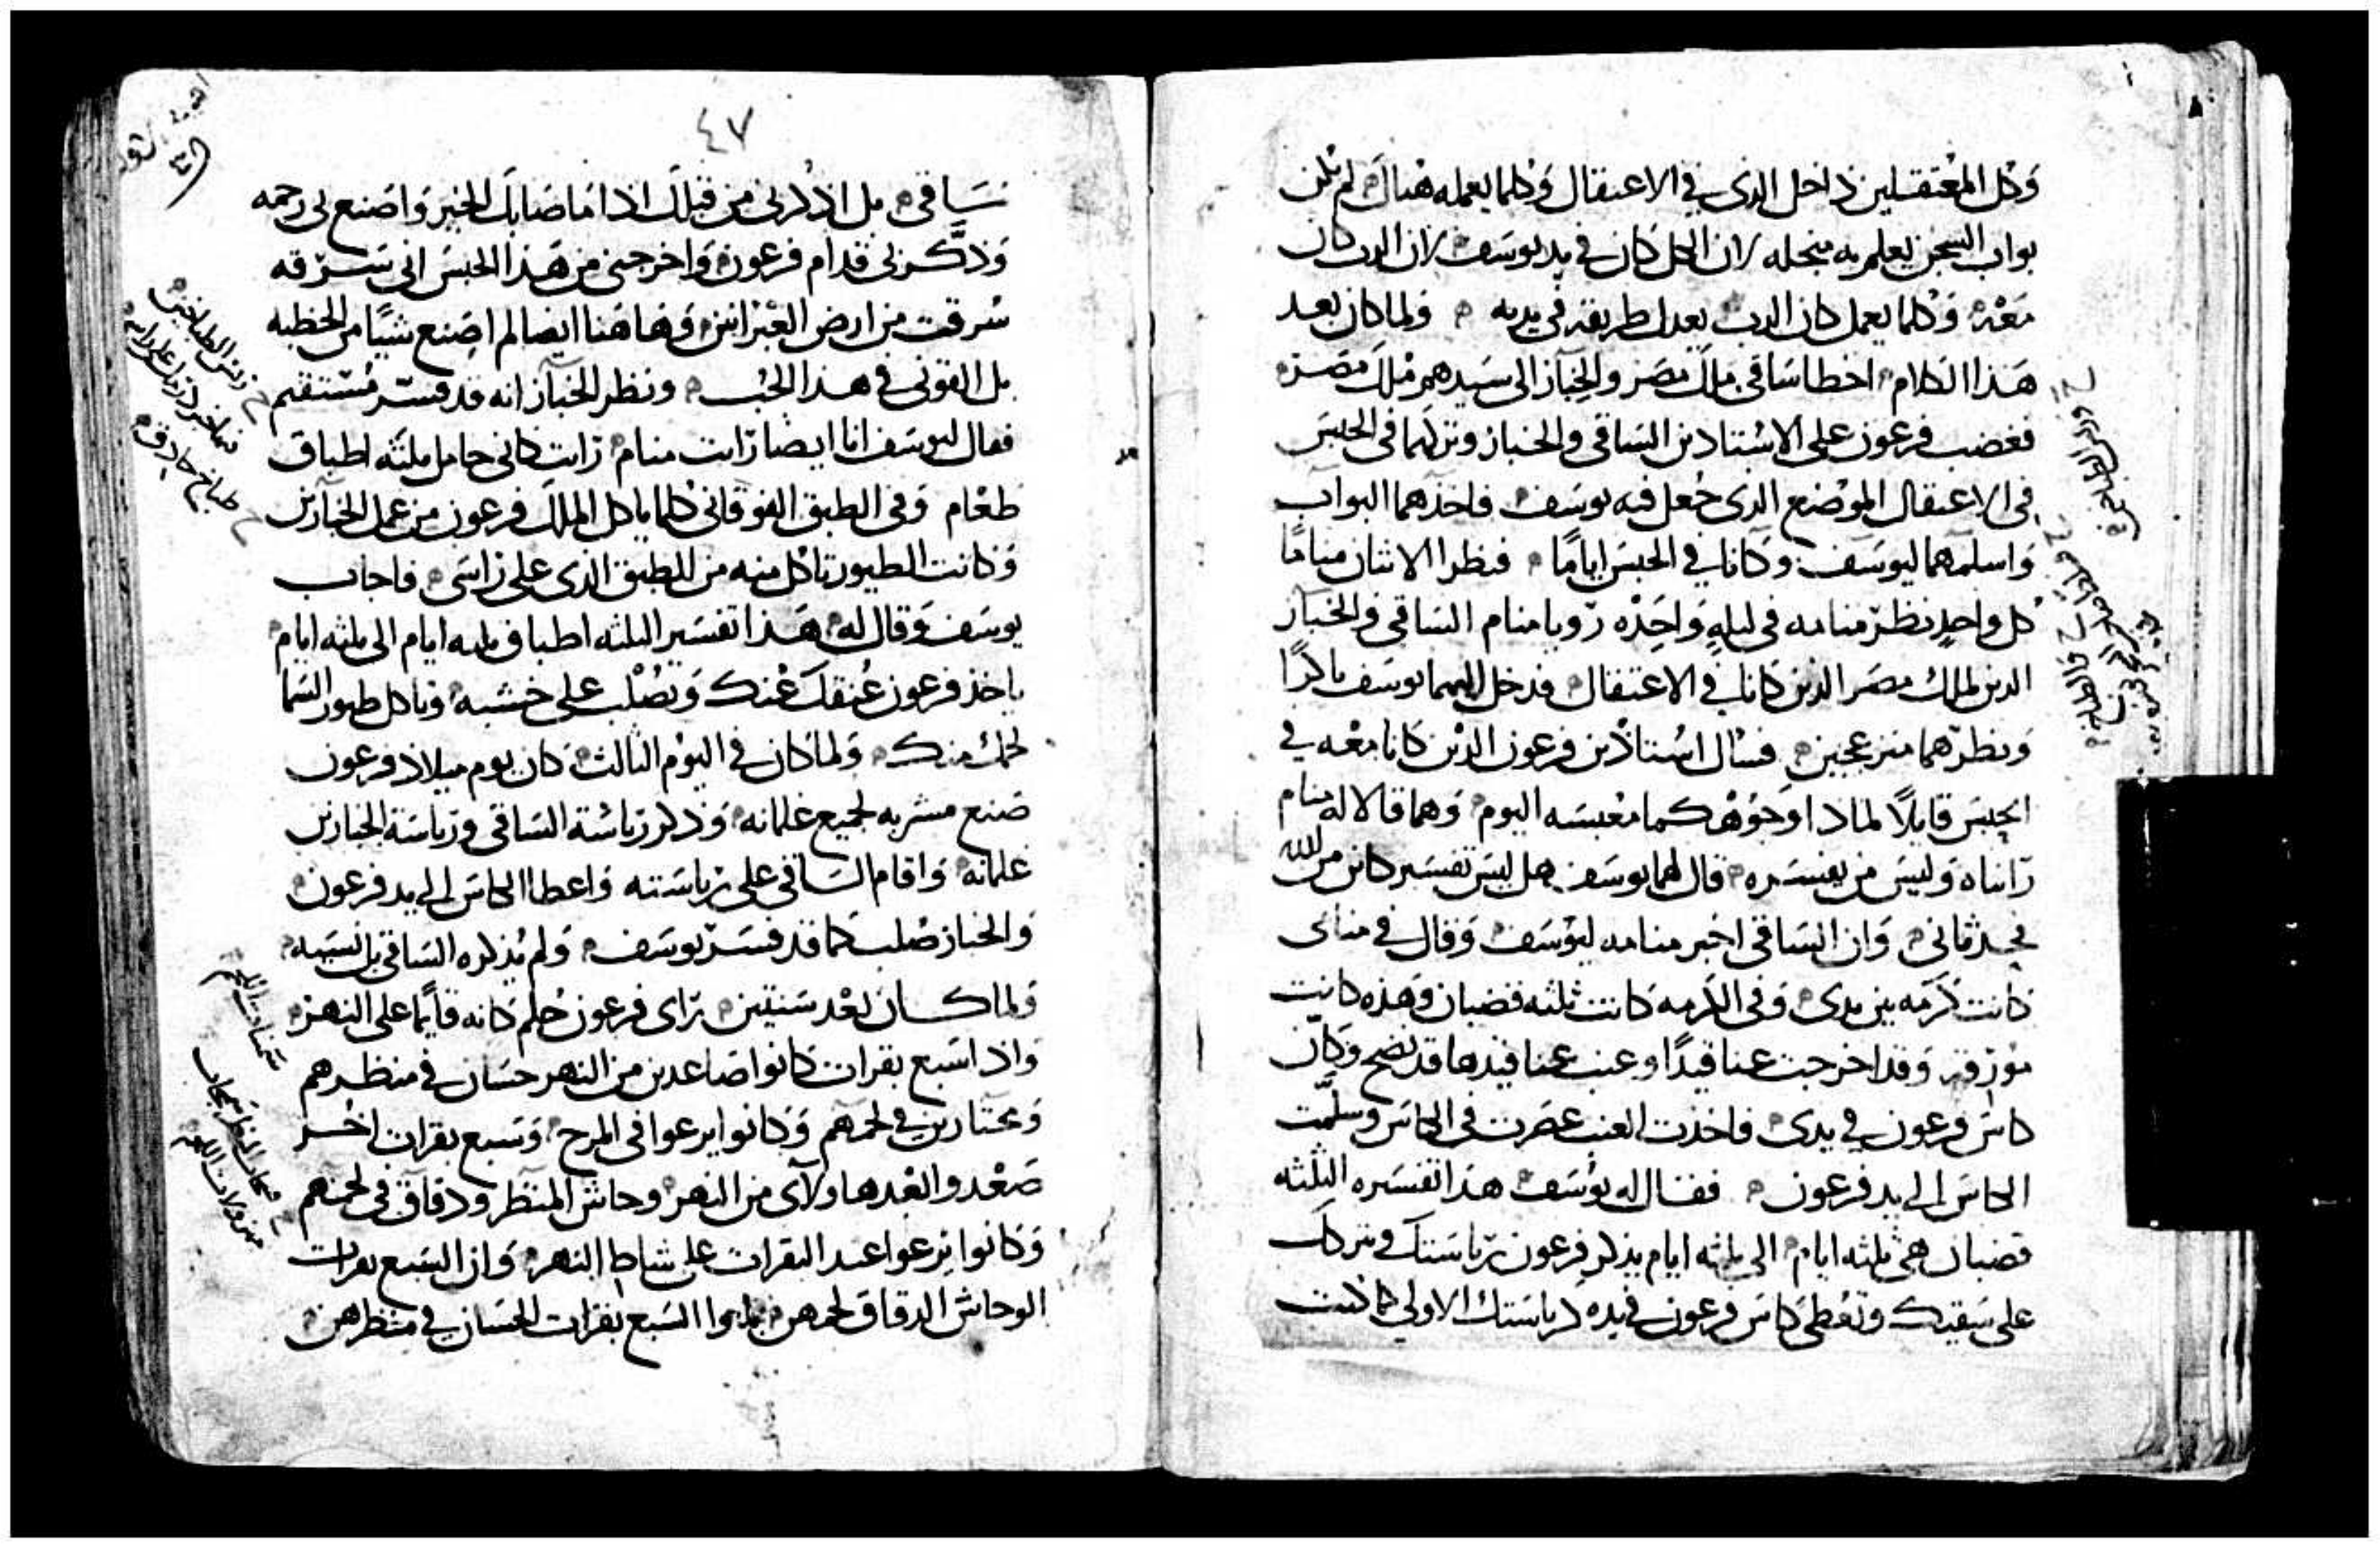 وكل المعتقلين داخل الذي في الاعتقال وكلما يعمله هناك لم يكن
بواب السجن يعلم به منجله لان الكل كان في يد يوسف لان الرب كان
معه وكلما يعمل كان الرب يعدل طريقه في يديه ولما كان بعد
هذا الكلام اخطا ساقي ملك مصر والخباز الى سيدهم ملك مصر
فغضب فرعون على الاستادين الساقي والخباز وتركهما في الحبس
في الاعتقال الموضع الذي جعل فيه يوسف فاخذهما البواب
واسلمهما ليوسف وكانا في الحبس اياما فنظرا الاثنان مناما
كل واحد نظر منامه في ليله واحده رويا منام الساقي والخباز
الدين لملك مصر الدين كانا في الاعتقال فدخل اليهما يوسف باكرا
ونظرهما منزعجين فسال استادين فرعون الدين كانا معه في
الحبس قايلا لمادا وجوهكما معبسه اليوم وهما قالا له منام
راناه وليس من يفسره قال لهما يوسف هل ليس تفسير كاين من الله
فحدثاني وان الساقي اخبر منامه ليوسف وقال في منامي
كانت كرمه بين يدي وفي الكرمه كانت ثلثه قضبان وهذه كانت
مورقه وقد اخرجت عناقيدا وعنب عناقيدها قد نضج وكان
كاس فرعون في يدي فاخذت العنب عصرت في الكاس وسلمت
الكاس الى يد فرعون فقال له يوسف هذا تفسيره الثلثه
قضبان هي ثلثه ايام الى ثلثه ايام يذكر فرعون رياستك ويتركك
على سقيك وتعطي كاس فرعون في يده كرياستك الاولى كما كنت
٤٧
ساقي بل اذكرني من قبلك اذا ما صابك الخير واصنع بي رحمه
وذكر بي قدام فرعون واخرجني من هذا الحبس اني سرقه
سرقت من ارض العبرانين وهاهنا ايضا لم اصنع شيا من الخطيه
بل القوني في هذا الجب ونظر الخباز انه قد فسر مستقيم
فقال ليوسف انا ايضا رايت منام رايت كاني حامل ثلثه اطباق
طعام وفي الطبق الفوقاني كلما ياكل الملك فرعون من عمل الخبازين
وكانت الطيور تاكل منه من الطبق الذي على راسي فاجاب
يوسف وقال له هذا تفسير الثلثه اطباق ثلثه ايام الى ثلثه ايام
ياخذ فرعون عنقك عنك ويصلب على خشبه وياكل طيور السما
لحمك منك ولما كان في اليوم الثالث كان يوم ميلاد فرعون
صنع مشربه لجميع غلمانه وذكر رياسة الساقي ورياسة الخبازين
غلمانه واقام الساقي على رياسته واعطا الكاس الى يد فرعون
والخباز صلب كما قد فسر يوسف ولم يذكره الساقي بل نسيه
ولما كان بعد سنتين راى فرعون حلم كانه قايما على النهر
واذا سبع بقرات كانوا صاعدين من النهر حسان في منظرهم
ومختارين في لحمهم وكانوا يرعوا في المرج وسبع بقرات اخر
صعدوا بعدها ولاي من النهر وحاش المنظر ودقاق في لحمهم
وكانوا يرعوا عند البقرات على شاطا النهر وان السبع بقرات
الوحاش الدقاق لحمهن السبع بقرات الحسان في منظرهن
ريس الطباخين
طباخ حادق